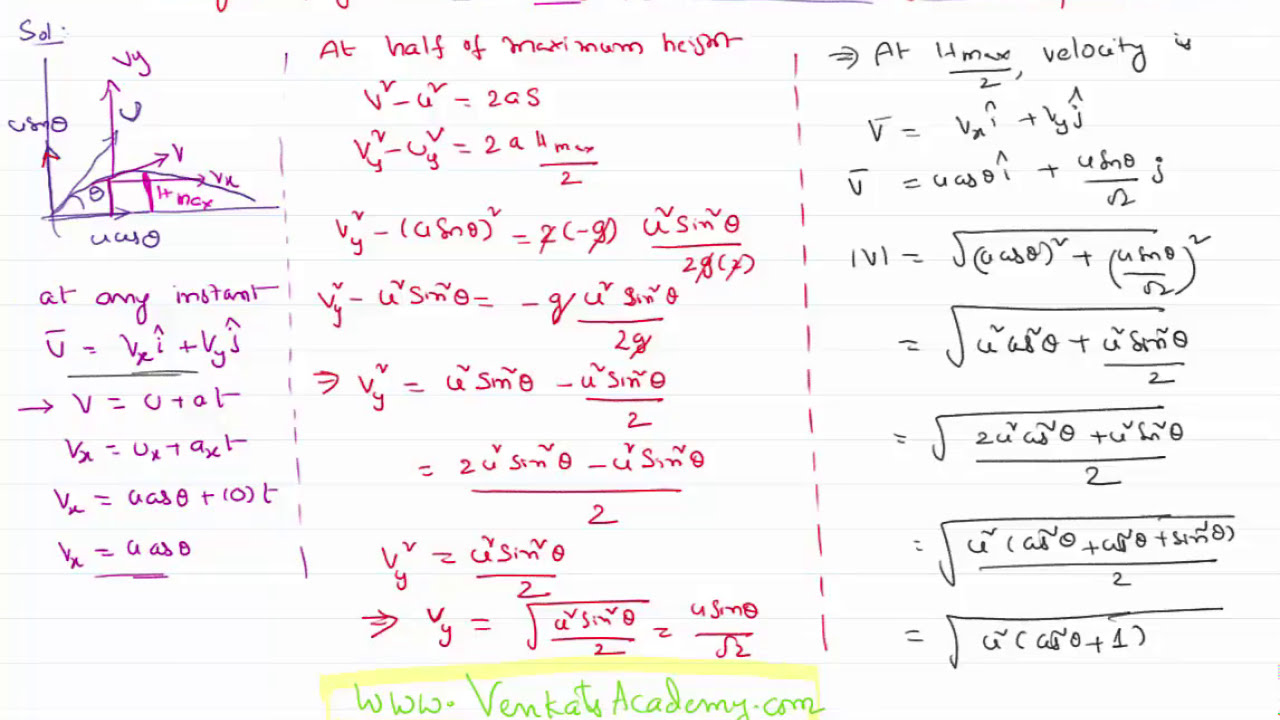 Sol:
Vy
U
usinθ
V
Vx
θ
Hmax
ucosθ
at any instant
Ū = Vx î + Vy ĵ
→ V = U + at
Vx = Ux + axt
Vx = ucosθ + (0) t
Vx = ucosθ
At half of maximum height
V² - u² = 2as
Vy² - Uy² = 2a Hmax/2
Vy² - (usinθ)² = 2(-g) u²sin²θ/2g(2)
Vy² - u²sin²θ = -g u²sin²θ/2g
⇒ Vy² = u²sin²θ - u²sin²θ/2
= 2u²sin²θ - u²sin²θ/2
Vy² = u²sin²θ/2
⇒ Vy = √(u²sin²θ/2) = usinθ/√2
⇒ At Hmax/2, velocity is
V̄ = Vx î + Vy ĵ
V̄ = ucosθ î + usinθ/√2 j
|V| = √((ucosθ)² + (usinθ/√2)²)
= √(u²cos²θ + u²sin²θ/2)
= √(2u²cos²θ + u²sin²θ/2)
= √(u²(cos²θ + cos²θ + sin²θ)/2)
= √(u²(cos²θ + 1)
www.VenkatsAcademy.com